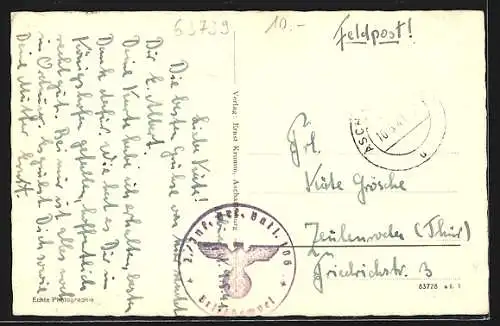 63739
10.-
Feldpost!
Liebe Käte!
Die besten Grüße von mir sendet
Dir L. Albert.
Deine Karte habe ich erhalten, besten
Dank dafür. Wie hat es Dir in
Königshofen gefallen, hoffentlich
recht gut. Bei mir ist alles noch
in Ordnung. Es grüßt Dich sowie
Deine Mutter
Echte Photographie
Verlag Ernst Krumm, Aschaffenburg
ASCH
Frl.
Käte Grösche
Zeulenroda (Thür)
Friedrichstr. 3
83728
2./Inf. Ers. Batl. 106
Briefstempel